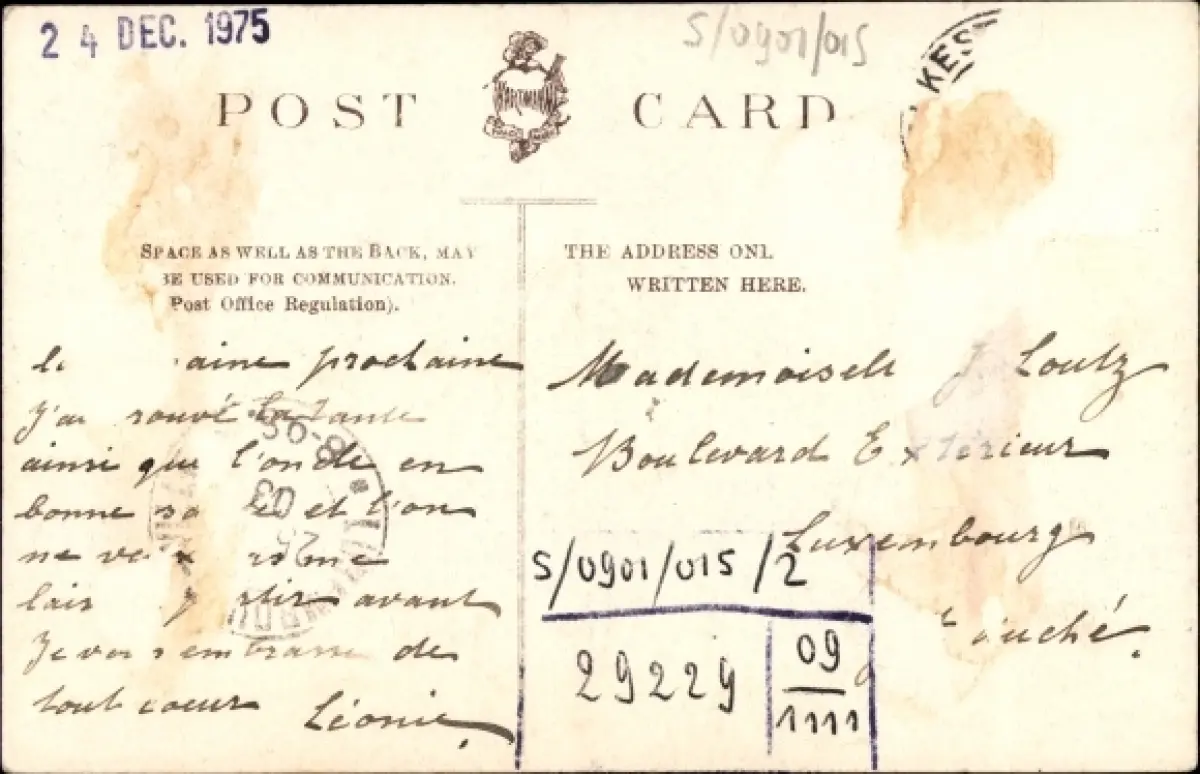 24 DEC. 1975
S/0901/015
KES
POST CARD
HARTMANN
SPACE AS WELL AS THE BACK, MAY
BE USED FOR COMMUNICATION.
Post Office Regulation).
THE ADDRESS ONL
WRITTEN HERE.
aine prochaine
J'ai rouvé la tante
ainsi que l'oncle en
bonne et l'on
ne même
lais avant
Je vous embrasse de
tout coeur Léonie.
Mademoiselle J. Loutz
Boulevard Extérieur
Luxembourg
Duché.
S/0901/015/2
29229
09
1111